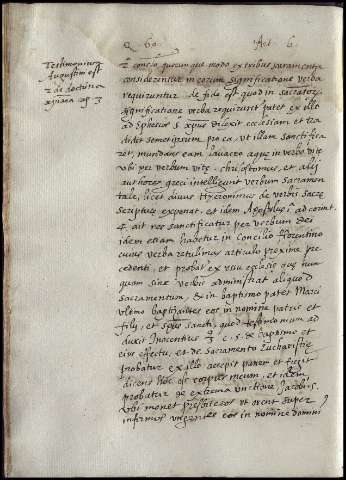 Q 60. Art 6.
Testimonium
Augustini est
2 de doctrina
xpiana cap 3
conclusio quocunque modo ex tribus sacramenta
considerentur in eorum significatione verba
requiruntur de fide est quod in sacramentorum
significatione verba requirunt patet ex illo
ad Ephesios 5 xpus dilexit ecclesiam et tra
didit semetipsum pro ea ut illam sanctifica
ret, mundans eam lavacro aque in verbo vite
ubi per verbum vite, chrisostomus, et alij
authores greci intelligunt verbum sacramen
tale, licet divus Hyeronimus de verbis sacre
scripture exponat, et idem Apostolus 1 ad corint.
4 ait res sanctificatur per verbum Dei
idem etiam habetur in Concilio florentino
cuius verba retulimus articulo proxime pre
cedenti, et probat ex usu ecclesie que nun
quam sine verbis administrat aliquod
sacramentum, & in baptismo patet Marci
ultimo baptizantes eos in nomine patris et
filij, et spiritus sancti, quod testimonium ad
duxit Inocentius 3 c. 5 de baptismo et
eius effectu, et de sacramento Eucharistie
probatur ex illo accepit panem et fregit
dicens Hoc est corpus meum, et idem
probatur de extrema unctione Jacobi 5
ubi monet presbiteros ut orent super
infirmos ungentes eos in nomine domini